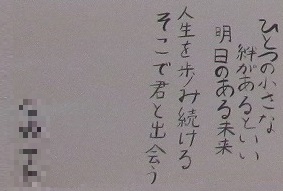 ひとつの小さな
絆があるといい
明日のある未来
人生を歩み続ける
そこで君と出会う